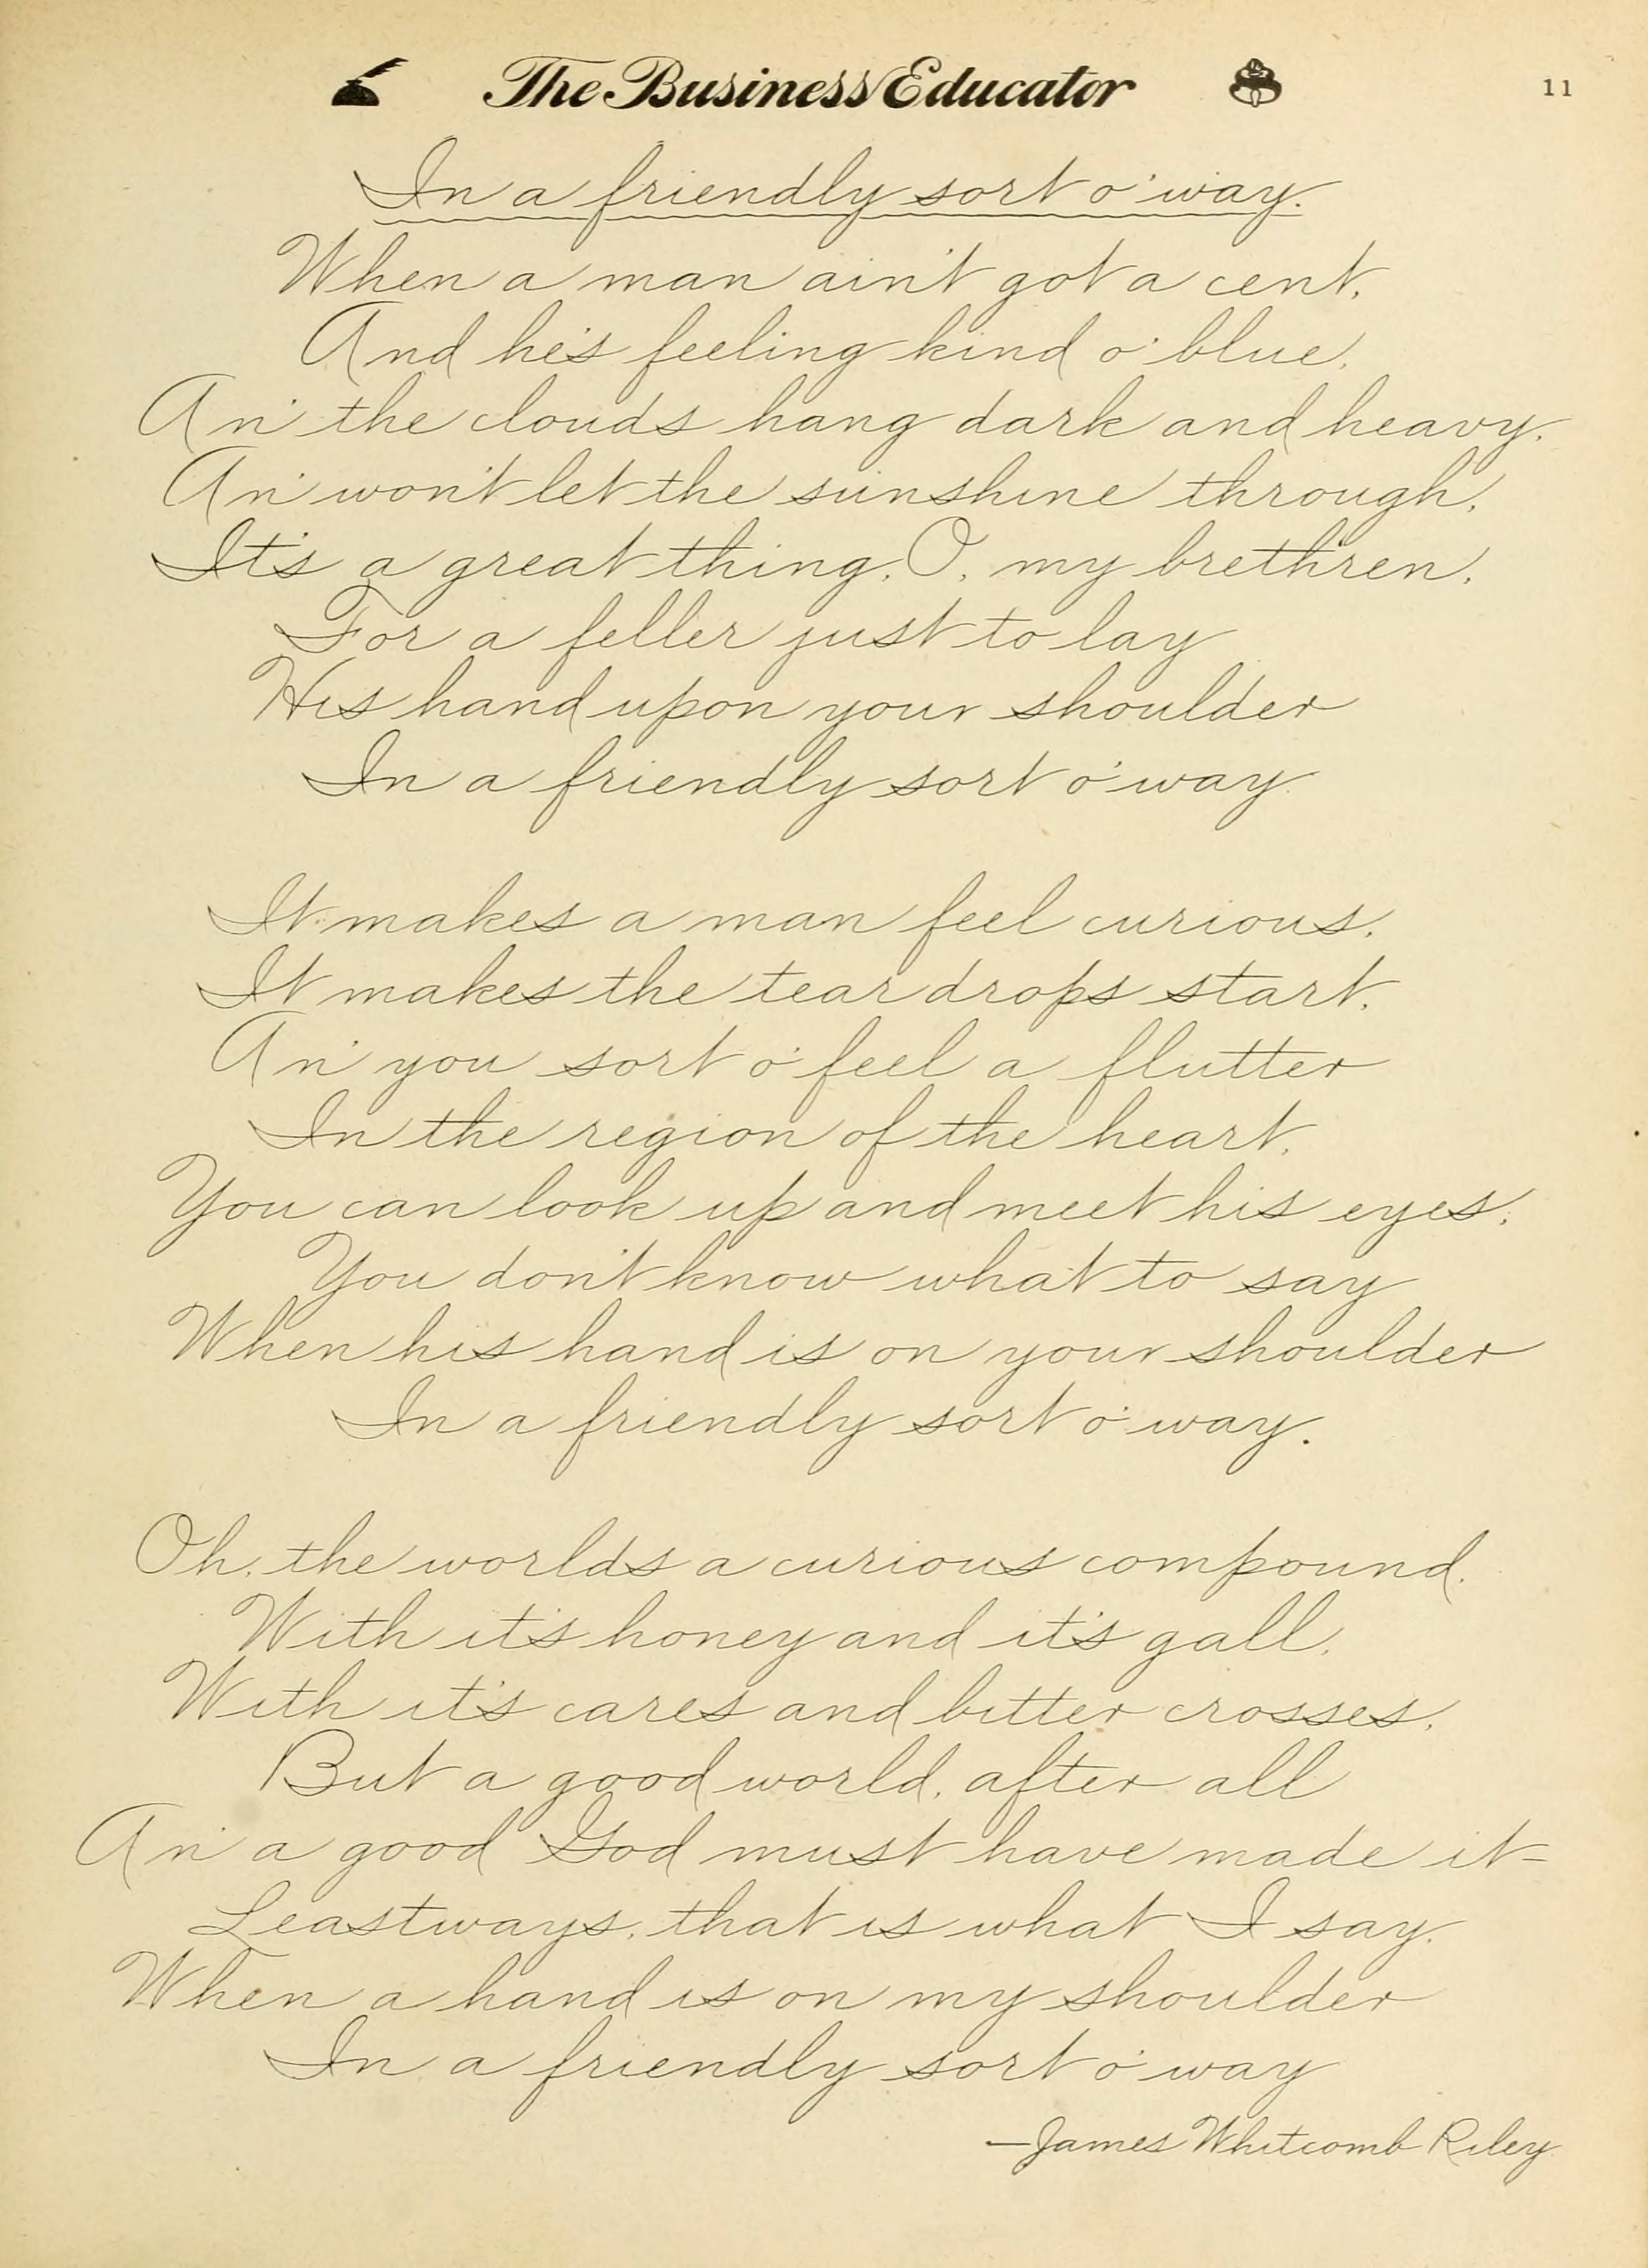 The Business Educator 11
In a friendly sort o' way.
When a man ain't got a cent,
And he's feeling kind o' blue,
An' the clouds hang dark and heavy,
An' won't let the sunshine through,
It's a great thing, O, my brethren,
For a feller just to lay
His hand upon your shoulder
In a friendly sort o' way.
It makes a man feel curious,
It makes the tear drops start,
An' you sort o' feel a flutter
In the region of the heart,
You can look up and meet his eyes;
You don't know what to say
When his hand is on your shoulder
In a friendly sort o' way.
Oh, the world's a curious compound,
With it's honey and it's gall,
With it's cares and bitter crosses,
But a good world, after all
An' a good God must have made it-
Leastways, that is what I say,
When a hand is on my shoulder
In a friendly sort o' way
—James Whitcomb Riley